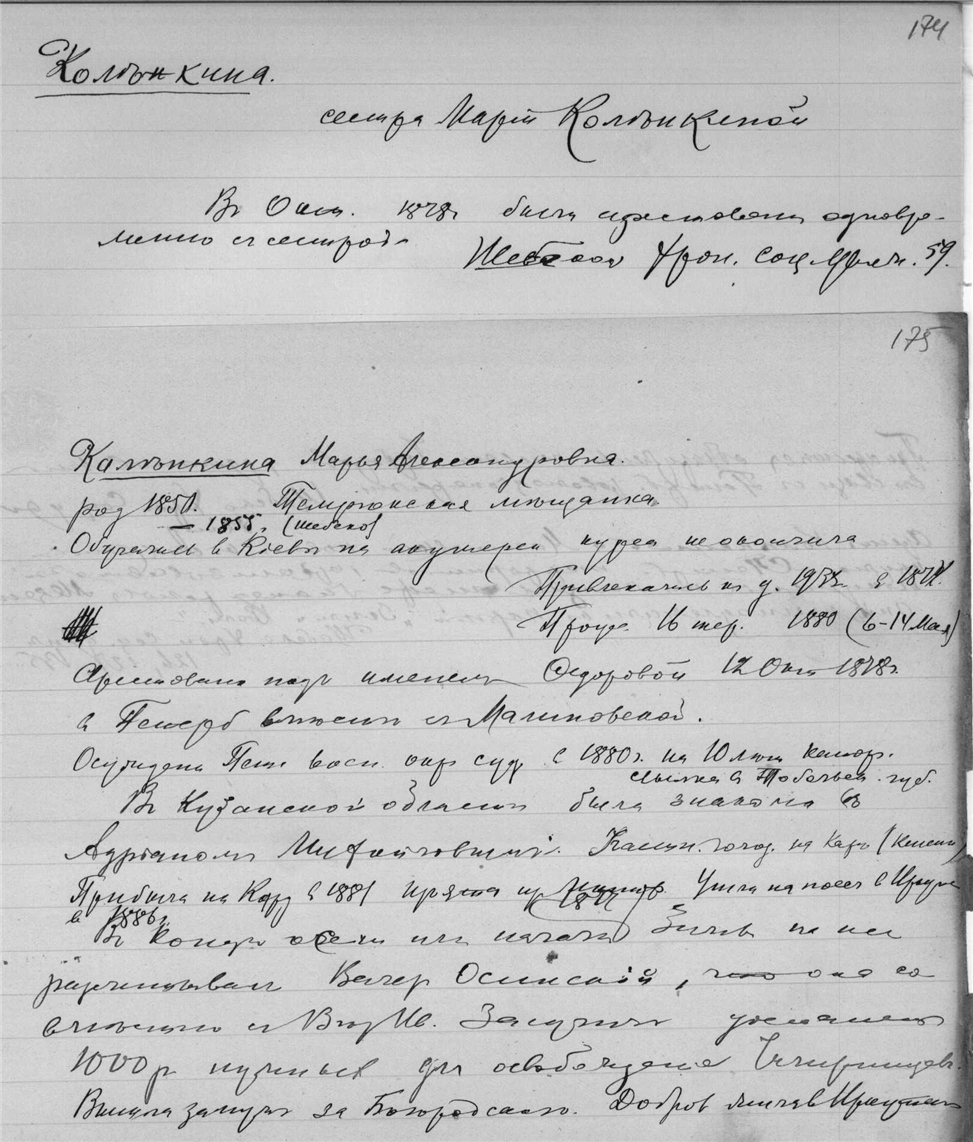 174
Колѣнкина.
сестра Маріи Колѣнкиной
Въ Окт. 1878г была арестована одновре-
менно съ сестрой
Шебеко Хрон. соц. движ. 59.
175
Калѣнкина Марья Александровна.
род 1850. Темрюкская мѣщанка
— 1855. (Шебеко)
Обучалась въ Кіевѣ на акушерск курса не окончила
Привлекалась по д. 193хъ в 187
Проц. 16 тер. 1880 (6-14 Мая)
Арестована подъ именемъ Федоровой 12 Окт 1878г.
в Петерб вмѣстѣ съ Малиновской.
Осуждена Пет воен. окр суд. в 1880г. на 10 лѣт катор.
ссылка в Тобольск. губ.
Въ Кубанской области была знакома съ
Адріаномъ Михайловымъ. на Карѣ (Кеннан)
Прибыла на Кару в 1881 Ушла на посел в Иркутс
в 1886г.
Въ концѣ осени или началѣ Зимы на нее
разсчитывалъ Валер Осинскій, что она со
вмѣстно съ Вѣр Ив. Засулич достанетъ
1000р нужных для освобожденія
Вышла замуж за Богородскаго. Добров